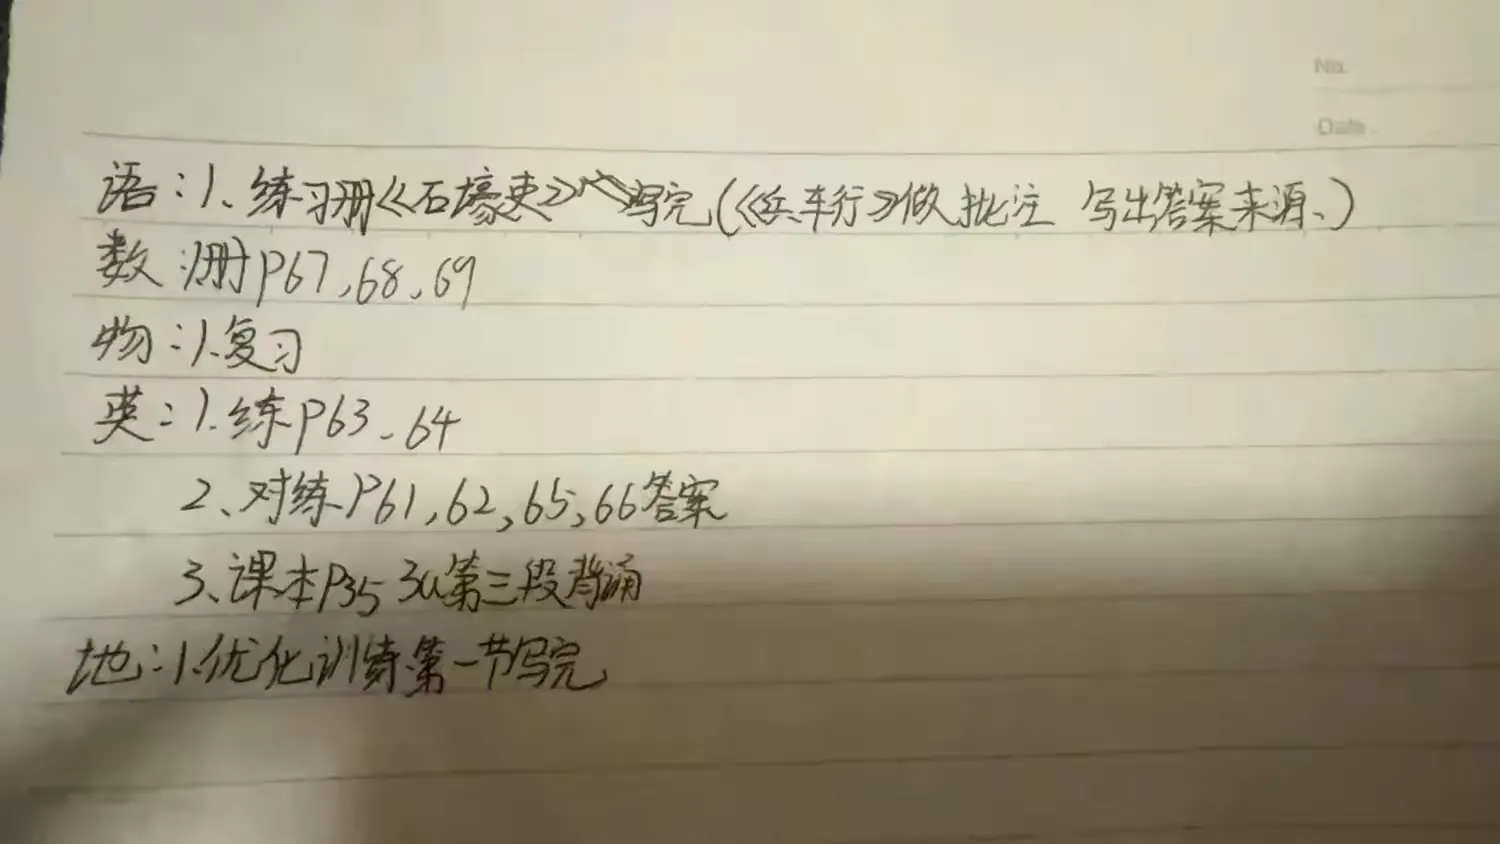 No.
Date.
语:1、练习册《石壕吏》写完(《兵车行》做批注 写出答案来源、)
数:册P67,68,69
物:1.复习
英:1.练P63、64
2、对练P61,62,65,66答案
3、课本P35 3a第三段背诵
地:1.优化训练第一节写完